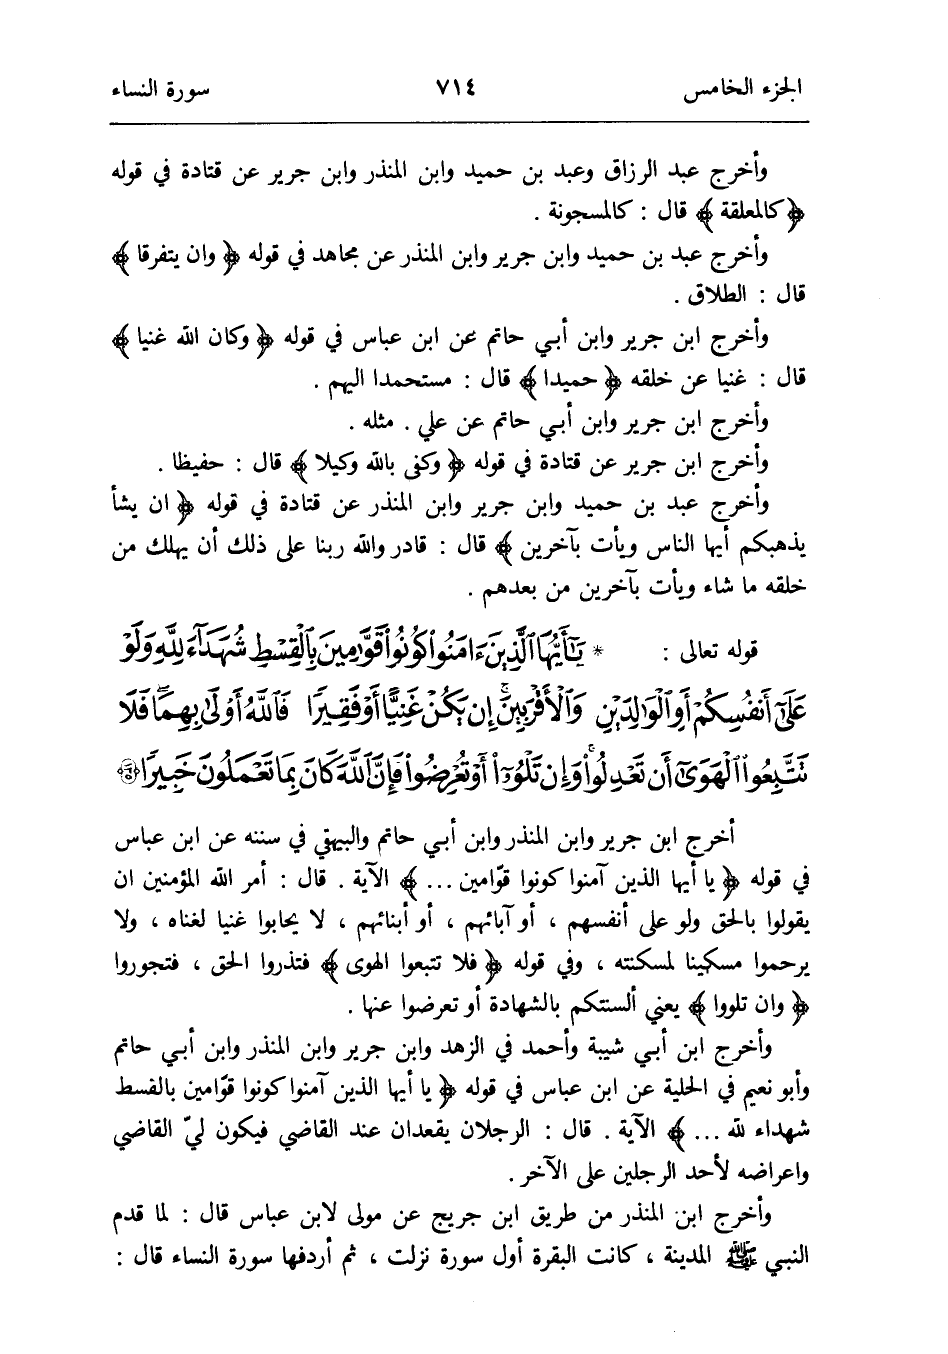 الجزء الخامس ٧١٤ سورة النساء
وأخرج عبد الرزاق وعبد بن حميد وابن المنذر وابن جرير عن قتادة في قوله
﴿ كالمعلقة ﴾ قال : كالمسجونة .
وأخرج عبد بن حميد وابن جرير وابن المنذر عن مجاهد في قوله ﴿ وان يتفرقا ﴾
قال : الطلاق .
وأخرج ابن جرير وابن أبي حاتم عن ابن عباس في قوله ﴿ وكان الله غنيا ﴾
قال : غنيا عن خلقه ﴿ حميدا ﴾ قال : مستحمدا اليهم .
وأخرج ابن جرير وابن أبي حاتم عن علي . مثله .
وأخرج ابن جرير عن قتادة في قوله ﴿ وكفى بالله وكيلا ﴾ قال : حفيظا .
وأخرج عبد بن حميد وابن جرير وابن المنذر عن قتادة في قوله ﴿ ان يشأ
يذهبكم أيها الناس ويأت بآخرين ﴾ قال : قادر والله ربنا على ذلك أن يهلك من
خلقه ما شاء ويأت بآخرين من بعدهم .
قوله تعالى : * يَٰٓأَيُّهَا ٱلَّذِينَ ءَامَنُوا۟ كُونُوا۟ قَوَّٰمِينَ بِٱلْقِسْطِ شُهَدَآءَ لِلَّهِ وَلَوْ
عَلَىٰٓ أَنفُسِكُمْ أَوِ ٱلْوَٰلِدَيْنِ وَٱلْأَقْرَبِينَ ۚ إِن يَكُنْ غَنِيًّا أَوْ فَقِيرًا فَٱللَّهُ أَوْلَىٰ بِهِمَا ۖ فَلَا
تَتَّبِعُوا۟ ٱلْهَوَىٰٓ أَن تَعْدِلُوا۟ ۚ وَإِن تَلْوُۥٓا۟ أَوْ تُعْرِضُوا۟ فَإِنَّ ٱللَّهَ كَانَ بِمَا تَعْمَلُونَ خَبِيرًا ﴿١٣٥﴾
أخرج ابن جرير وابن المنذر وابن أبي حاتم والبيهقي في سننه عن ابن عباس
في قوله ﴿ يا أيها الذين آمنوا كونوا قوّامين ... ﴾ الآية . قال : أمر الله المؤمنين ان
يقولوا بالحق ولو على أنفسهم ، أو آبائهم ، أو أبنائهم ، لا يحابوا غنيا لغناه ، ولا
يرحموا مسكينا لمسكنته ، وفي قوله ﴿ فلا تتبعوا الهوى ﴾ فتذروا الحق ، فتجوروا
﴿ وان تلووا ﴾ يعني ألسنتكم بالشهادة أو تعرضوا عنها .
وأخرج ابن أبي شيبة وأحمد في الزهد وابن جرير وابن المنذر وابن أبي حاتم
وأبو نعيم في الحلية عن ابن عباس في قوله ﴿ يا أيها الذين آمنوا كونوا قوّامين بالقسط
شهداء لله ... ﴾ الآية . قال : الرجلان يقعدان عند القاضي فيكون ليّ القاضي
واعراضه لأحد الرجلين على الآخر .
وأخرج ابن المنذر من طريق ابن جريج عن مولى لابن عباس قال : لما قدم
النبي ﷺ المدينة ، كانت البقرة أول سورة نزلت ، ثم أردفها سورة النساء قال :